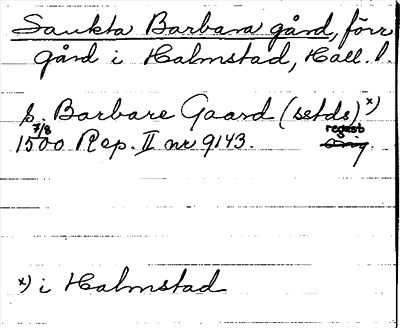 Sankta Barbara gård, förr
gård i Halmstad, Hall. l.
s. Barbare Gaard (setds) x)
7/8
1500 Rep. II nr 9143.
regest
orig.
x) i Halmstad